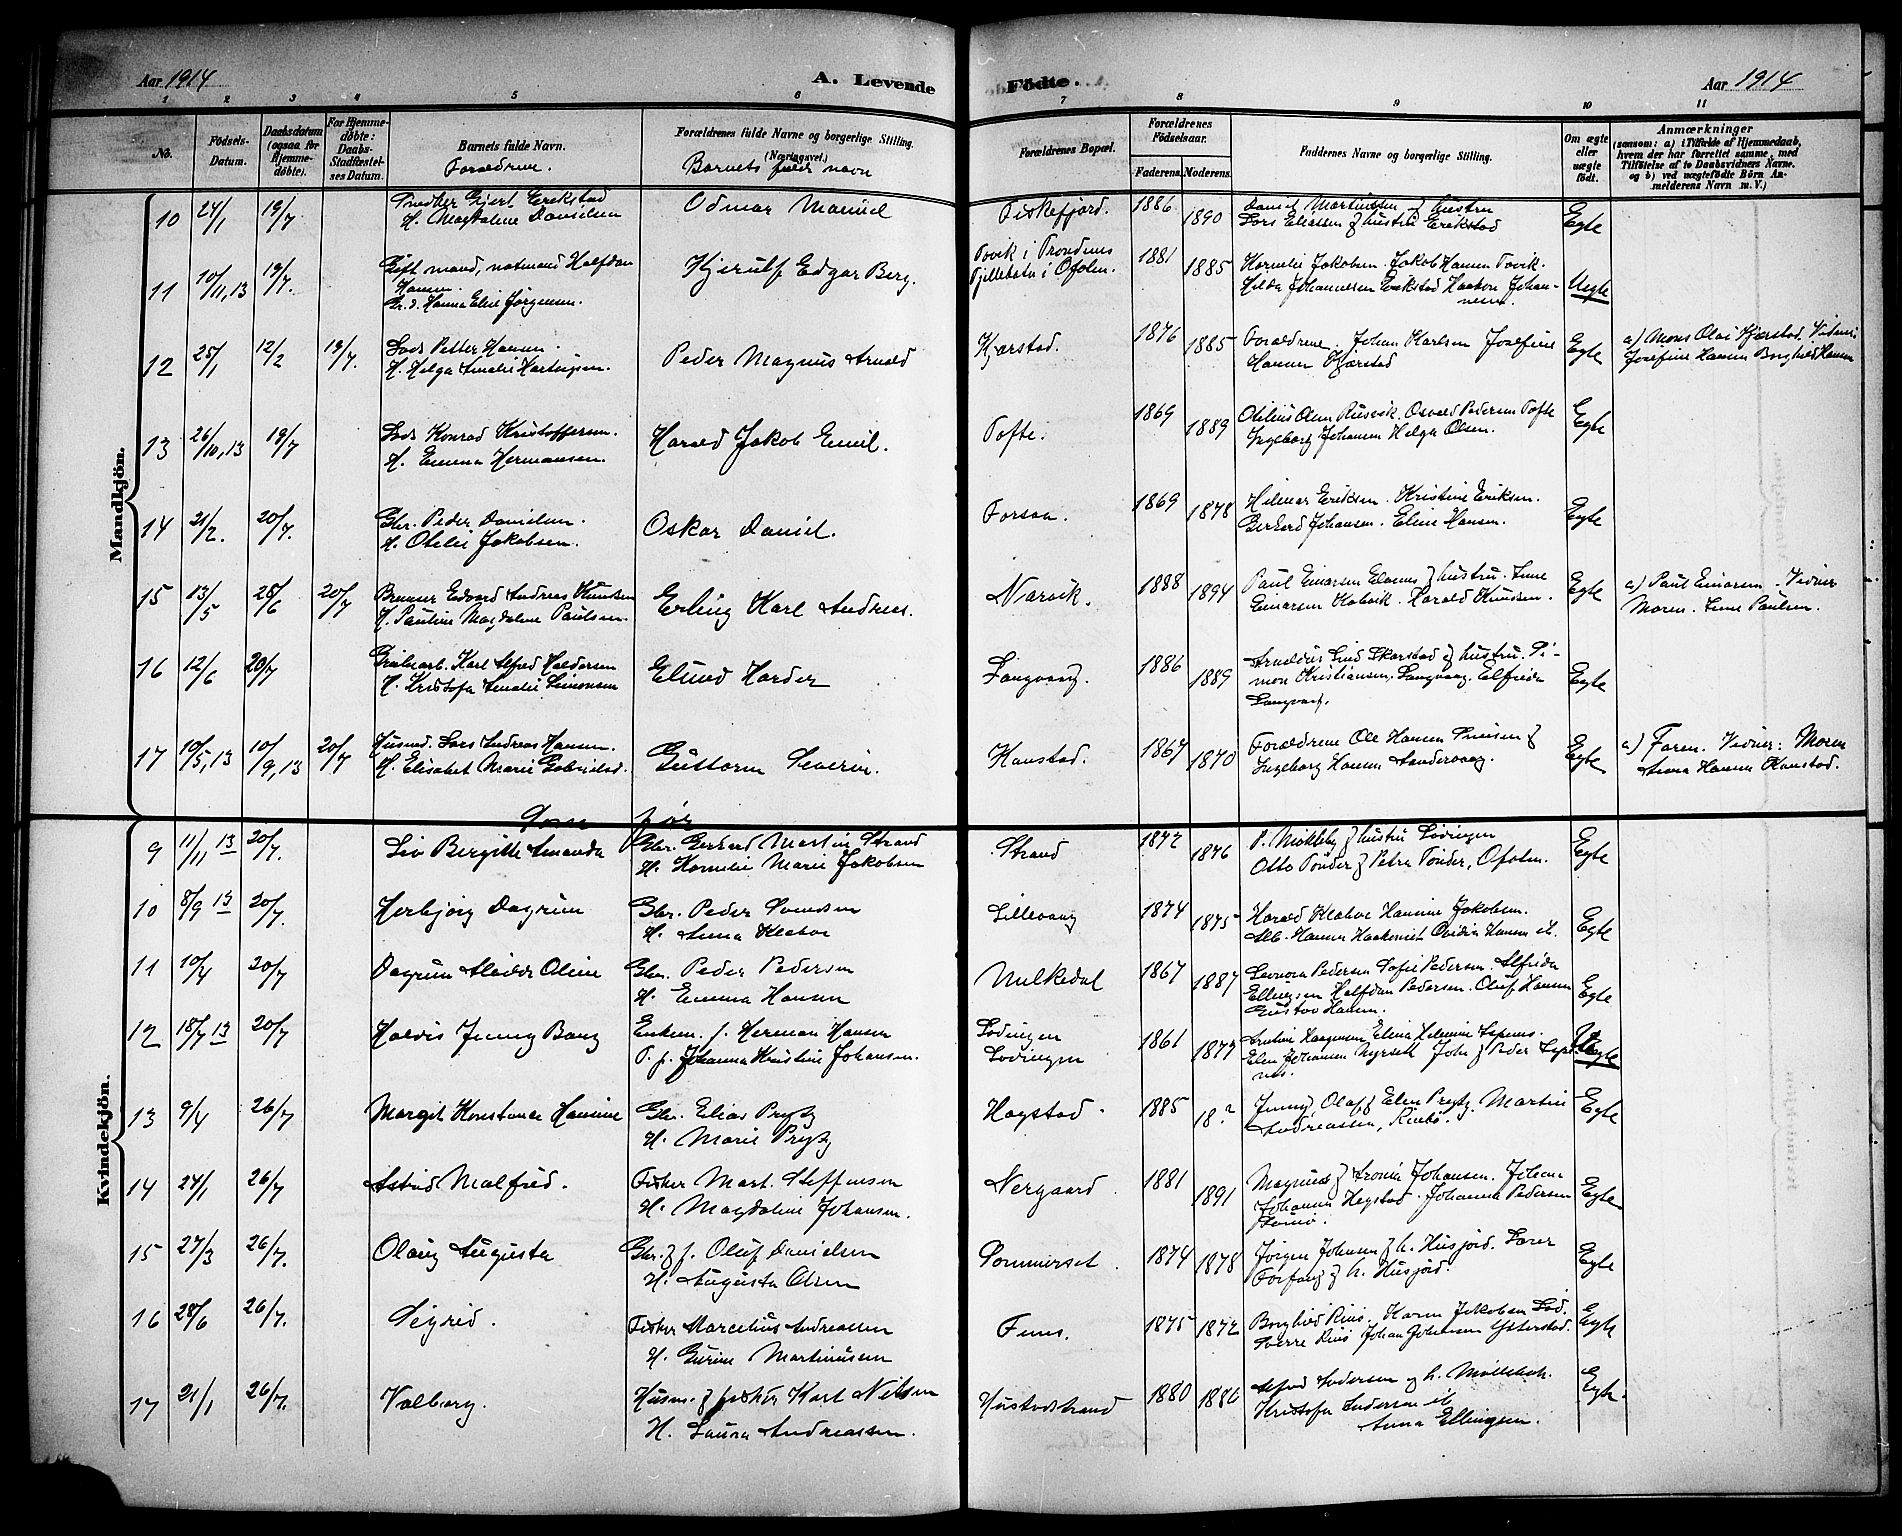 Aar 1914
A. Levende
Födte.
Aar 1914
1 2 3 4 5 6 7 8 9 10 11
No.
Födsels-Datum.
Daabsdatum (ogsaa for Hjemme-döbte).
For Hjemme-döbte: Daabs-Stadfæstel-ses Datum.
Barnets fulde Navn.
Forældrene.
Forældrenes fulde Navne og borgerlige Stilling.
(Næringsvei.)
Barnets fulde navn
Forældrenes Bopæl.
Forældrenes Födselsaar.
Faderens. Moderens.
Faddernes Navne og borgerlige Stilling.
Om ægte eller uægte födt.
Anmærkninger
(saasom: a) i Tilfælde af Hjemmedaab,
hvem der har forrettet samme, med
Tilföielse af to Daabsvidners Navne.
og b) ved uægtefödte Börn An-
melderens Navn m. V.)
Mandkjön.
10 24/1 19/7 Gjert Erikstad
H. Magdalene Danielsen
Odmar Manuel
Fiskefjord. 1886 1890
Daniel Martinssen & hustru
Lars Eliassen & hustru Erikstad
Egte
11 10/11,13 19/7. Gift mand, notmand Halfdan
Hansen.
Hanna Elise Jørgensen.
Hjerulf Edgar Berg.
Tovik i Trondenes
i Ofoten.
1881 1885
Kornelie Jakobsen. Jakob Hansen Tovik.
Hilda Johannesen Erikstad Haakon Johan-
nesen.
Uegte
12 25/1 12/2 19/7. Petter Hansen.
H. Helga Amalie Hartvigsen.
Peder Magnus Arnold
Kjærstad. 1876 1885
Forældrene. Johan Karlsen Josefine
Hansen Kjærstad
Egte
a) Mons Olai Kjærstad. Vidner:
Josefine Hansen Borghild Hansen
13 26/10,13 19/7 Konrad Kristoffersen.
H. Emma Hermansen.
Harald Jakob Emil.
Tofte. 1869 1889
Otelius Olsen Rusvik. Osvald Pedersen Tofte
Ingeborg Johansen Helga Olsen.
Egte
14 21/2. 20/7. Gbr. Peder Danielsen.
H. Otelie Jakobsen.
Oskar Daniel.
Forsaa. 1869 1878
Hilmar Eriksen. Kristine Eriksen.
Gerhard Johansen. Eline Hansen.
Egte
15 13/5 25/6 20/7 Edvard Andreas Knudsen
H. Pauline Magdalene Paulsen.
Erling Karl Andreas.
Narvik. 1888 1894
Paul Einarsen & hustru. Line
Einarsen Harald Knudsen.
Egte
a) Paul Einarsen. Vidner
Moren. Line Paulsen.
16 12/6 20/7 Karl Alfred Haldorsen
H. Kristofa Amalie Simonsen
Elund Harder
Langvaag. 1886 1889
Arnoldus Lind Skarstad & hustru. Si-
mon Kristiansen, Langvaag. Elfrida
Langvaag.
Egte
17 10/5,13 10/9,13 20/7 Husmd. Lars Andreas Hansen.
H. Elisabet Marie Gabrielsd.
Guttorm Severin.
Kanstad. 1867 1870
Forældrene Ole Hansen &
Ingeborg Hansen Sandervaag.
Egte
a) Faren. Vidner: Moren
Anna Hansen Kanstad.
Som før
Kvindekjön.
9 11/11 13 20/7. Liv Bergitte Amanda
Gbr. Gerhard Martin Strand
H. Kornelie Marie Jakobsen
Strand 1872 1876
P. Mökleby & hustru Lødingen
Otto Tönder & Petra Tönder, Ofoten.
Egte
10 8/9 13 20/7. Herbjørg Dagrun
Gbr. Peder Svendsen
H. Anna Klæboe
Lillevaag 1874 1875
Harald Klæboe Hansine Jakobsen.
Hanna Ovidia Hansen
Egte
11 10/4 20/7 Dagrun Oline
Gbr. Peder Pedersen
H. Emma Hansen
Nulkedal 1867 1887
Leonora Pedersen Sofie Pedersen. Alfrida
Ellingsen Halfdan Pedersen. Oluf Hansen
Gustav Hansen.
Egte
12 18/7 13 20/7 Haldis Jenny Bang
Enkem. f. Herman Hansen
P. f. Johanna Kristine Johansen.
Lødingen
Lødingen
1861 1879
Elen Johansen John & Peder
Uegte
13 9/4 26/7 Margit Konstanse Hansine
Gbr. Elias Prytz
H. Marie Prytz
Hagstad. 1885 18?
Jenny, Olaf & Elen Prytz. Martin
Andreassen, Rinbø.
Egte
14 24/1 26/7 Astrid Malfred.
Fisker Mart. Steffensen
H. Magdalene Johansen.
Nergaard. 1881 1891
Magnus & Johansen. Johan
Johansen Hegstad. Johanna Pedersen
Egte
15 27/3 26/7. Olaug Augusta
Gbr. & f. Oluf Danielsen
H. Augusta Olsen
Sommerset. 1874 1878
Jørgen Johnsen & h. Husjord.
Forfang & h. Husjord.
Egte
16 28/6 26/7. Sigrid.
Fisker Marcelius Andreassen
H. Gurine Martinussen
Fines. 1875 1872
Borghild Karen Jakobsen
Sverre Johan Johansen Ytterstad.
Egte
17 21/1 26/7. Valborg.
Husm. & fisker Karl Nilsen
H. Laura Andreassen.
Hustadstrand 1880 1886
Alfred Andersen og h.
Kristofa Andersen
Anna Ellingsen.
Egte.